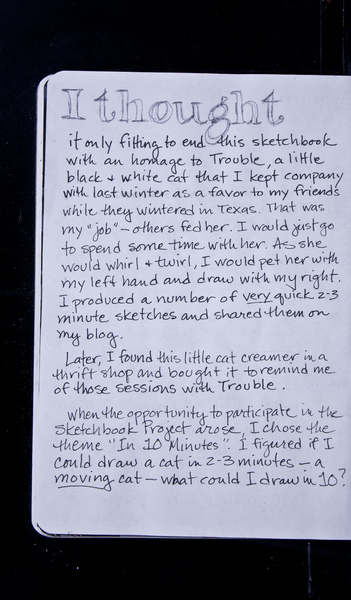 I thought
it only fitting to end this sketchbook
with an homage to Trouble, a little
black & white cat that I kept company
with last winter as a favor to my friends
while they wintered in Texas. That was
my "job" – others fed her. I would just go
to spend some time with her. As she
would whirl & twirl, I would pet her with
my left hand and draw with my right.
I produced a number of very quick 2-3
minute sketches and shared them on
my blog.
Later, I found this little cat creamer in a
thrift shop and bought it to remind me
of those sessions with Trouble.
When the opportunity to participate in the
Sketchbook Project arose, I chose the
theme "In 10 Minutes". I figured if I
could draw a cat in 2-3 minutes – a
moving cat – what could I draw in 10?